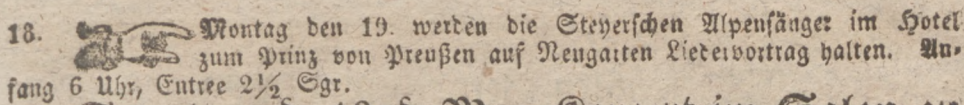 18. Montag den 19. werden die Steyerschen Alpensänger im Hotel
zum Prinz von Preußen auf Neugarten Liedervortrag halten. An-
fang 6 Uhr, Entree 2½ Sgr.